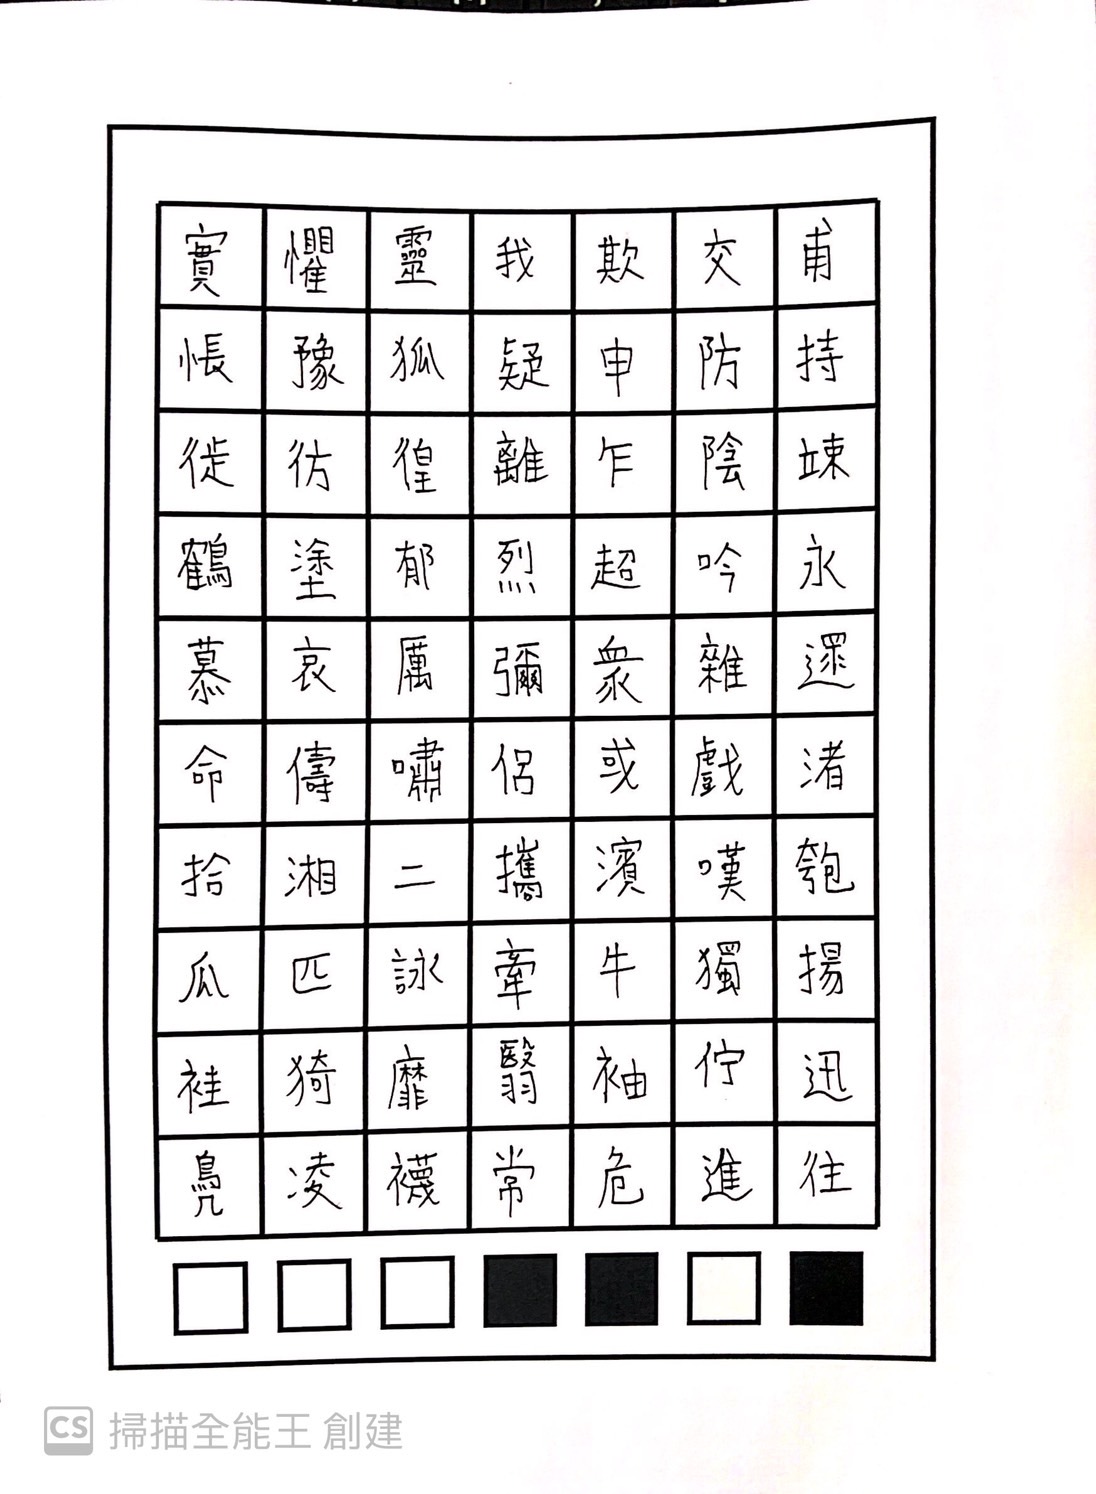 實懼靈我欺交甫
悵豫狐疑申防持
徙彷徨離乍陰竦
鶴塗郁烈超吟永
慕哀厲彌衆雜遝
命儔嘯侶或戲渚
拾湘二攜濱嘆匏
瓜匹詠牽牛獨揚
袿猗靡翳袖佇迅
鳧凌襪常危進往
CS 掃描全能王 創建